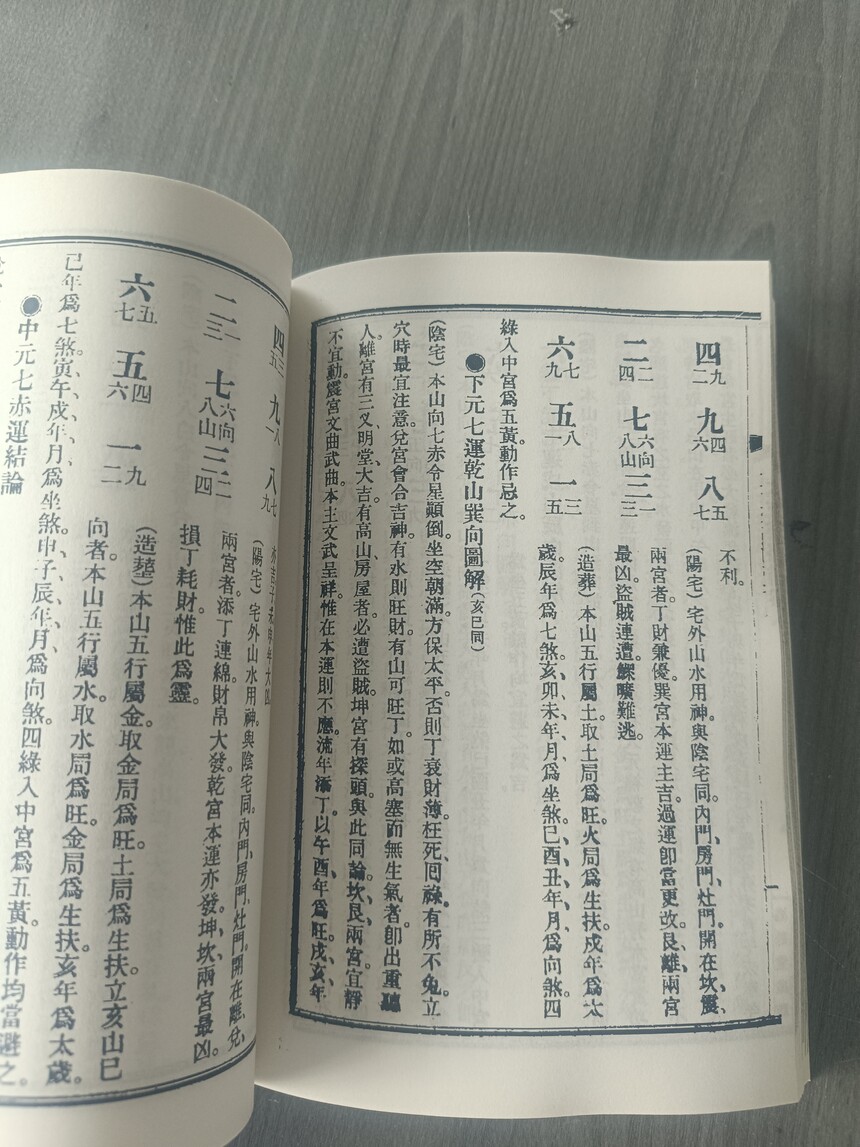 四九二 九四六 八五七
二二四 七六向八山 三一三
六七九 五八一 一三五
不利。
(陽宅)宅外山水用神。與陰宅同。內門、房門、灶門。開在坎、震、
兩宮者丁財兼優。巽宮本運主吉。過運卽當更改。艮、離、兩宮
最凶。盜賊連遭。鰥曠難逃。
(造葬)本山五行屬土。取土局爲旺。火局爲生扶。戌年爲太
歲。辰年爲七煞。亥、卯、未、年、月、爲坐煞。巳、酉、丑、年、月、爲向煞。四
綠入中宮爲五黃。動作忌之。
●下元七運乾山巽向圖解(亥巳同)
(陰宅)本山向七赤令星顚倒。坐空朝滿。方保太平。否則丁衰財薄。枉死、回祿。有所不免。立
穴時最宜注意。兌宮會合吉神。有水則旺財。有山可旺丁。如或高塞而無生氣者。卽出重聽
人。離宮有三叉、明堂大吉。有高山、房屋者。必遭盜賊。坤宮有探頭。與此同論。坎、艮、兩宮宜靜
不宜動。震宮文曲武曲。本主文武呈祥。惟在本運則不應。流年添丁。以午、酉、年爲旺。戌、亥、年
四三五 九八一 八七九
二一三 七六向八山 三二四
六五七 五四六 一九二
(陽宅)宅外山水用神。與陰宅同。內門、房門、灶門。開在離、兌、
兩宮者。添丁連綿。財帛大發。乾宮本運亦發。坤、坎、兩宮最凶。
損丁耗財。惟此爲靈。
(造塟)本山五行屬金。取金局爲旺。土局爲生扶。立亥山巳
向者。本山五行屬水。取水局爲旺。金局爲生扶。亥年爲太歲。
巳年爲七煞。寅、午、戌、年、月、爲坐煞。申、子、辰、年、月、爲向煞。四綠入中宮爲五黃。動作均當避之。
●中元七赤運結論